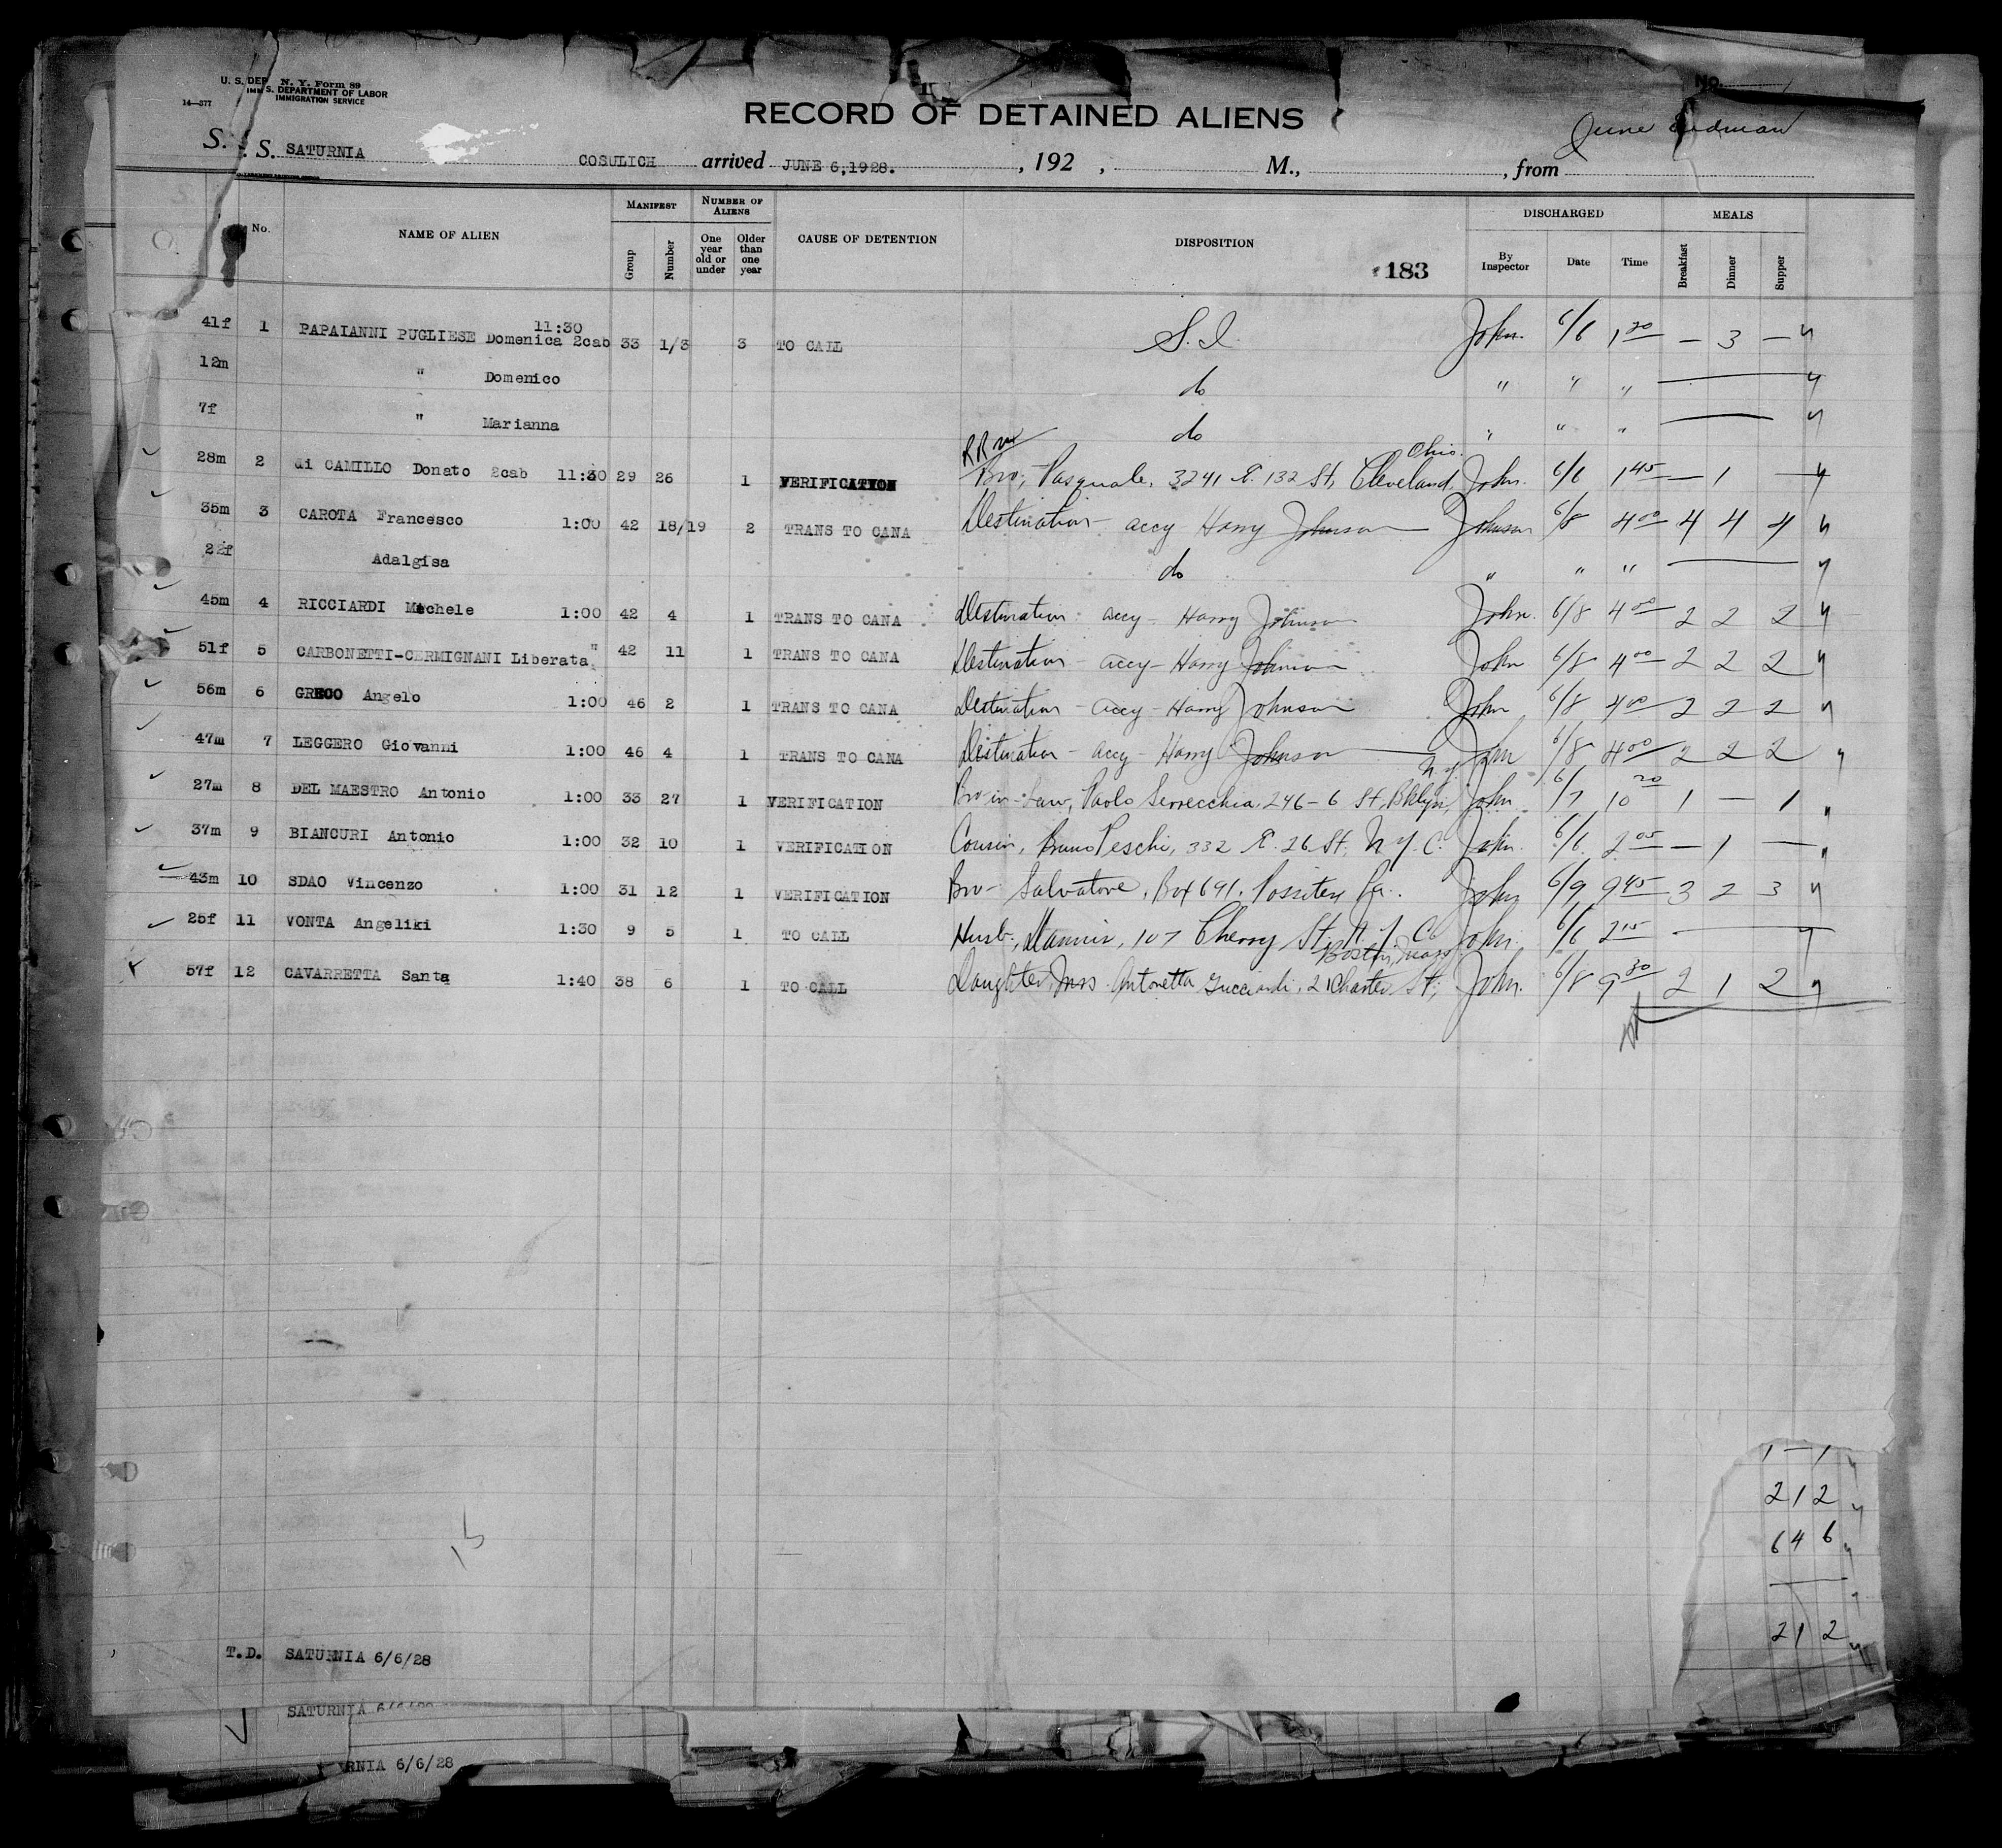 U. S. DEP N. Y. Form 89
IMM S. DEPARTMENT OF LABOR
14—377 IMMIGRATION SERVICE
No.
RECORD OF DETAINED ALIENS
June
S. S. S. SATURNIA COSULICH arrived JUNE 6, 1928. , 192 , M., , from
No. NAME OF ALIEN MANIFEST Group Number NUMBER OF ALIENS One year old or under Older than one year CAUSE OF DETENTION DISPOSITION 183 DISCHARGED By Inspector Date Time MEALS Breakfast Dinner Supper
41f 1 PAPAIANNI PUGLIESE Domenica 2cab 11:30 33 1/3 3 TO CALL S. I. John. 6/6 1 20 — 3 —
12m " Domenico do " " "
7f " Marianna do " " "
28m 2 di CAMILLO Donato 2cab 11:30 29 26 1 VERIFICATION RR Bro, Pasquale, 3241 E. 132 St, Cleveland, Ohio. John. 6/6 1 45 — 1 —
35m 3 CAROTA Francesco 1:00 42 18/19 2 TRANS TO CANA Destination - accy Harry Johnson Johnson 6/8 4 00 4 4 4
22f Adalgisa do " " "
45m 4 RICCIARDI Michele 1:00 42 4 1 TRANS TO CANA Destination - accy - Harry Johnson John. 6/8 4 00 2 2 2
51f 5 CARBONETTI-CERMIGNANI Liberata " 42 11 1 TRANS TO CANA Destination - accy - Harry Johnson John 6/8 4 00 2 2 2
56m 6 GRECO Angelo 1:00 46 2 1 TRANS TO CANA Destination - accy - Harry Johnson John 6/8 4 00 2 2 2
47m 7 LEGGERO Giovanni 1:00 46 4 1 TRANS TO CANA Destination - accy - Harry Johnson John 6/8 4 00 2 2 2
27m 8 DEL MAESTRO Antonio 1:00 33 27 1 VERIFICATION Bro in-law, Paolo Serrecchia, 246-6 St, Bklyn, N.Y. John 6/7 10 20 1 — 1
37m 9 BIANCURI Antonio 1:00 32 10 1 VERIFICATION Cousin, Bruno Peschi, 332 E. 26 St, N.Y.C. John. 6/6 2 05 — 1 —
43m 10 SDAO Vincenzo 1:00 31 12 1 VERIFICATION Bro- Salvatore, Box 691, Rossiter Pa. John 6/9 9 45 3 2 3
25f 11 VONTA Angeliki 1:30 9 5 1 TO CALL Husb., 107 Cherry St, N.Y.C. John. 6/6 2 15
57f 12 CAVARRETTA Santa 1:40 38 6 1 TO CALL Daughter, Mrs. Antonetta Gucciardi, 21 Charter St, Boston, Mass John. 6/8 9 30 2 1 2
1 — 1
2 1 2
6 4 6
2 1 2
T.D. SATURNIA 6/6/28
SATURNIA 6/6/28
RNIA 6/6/28